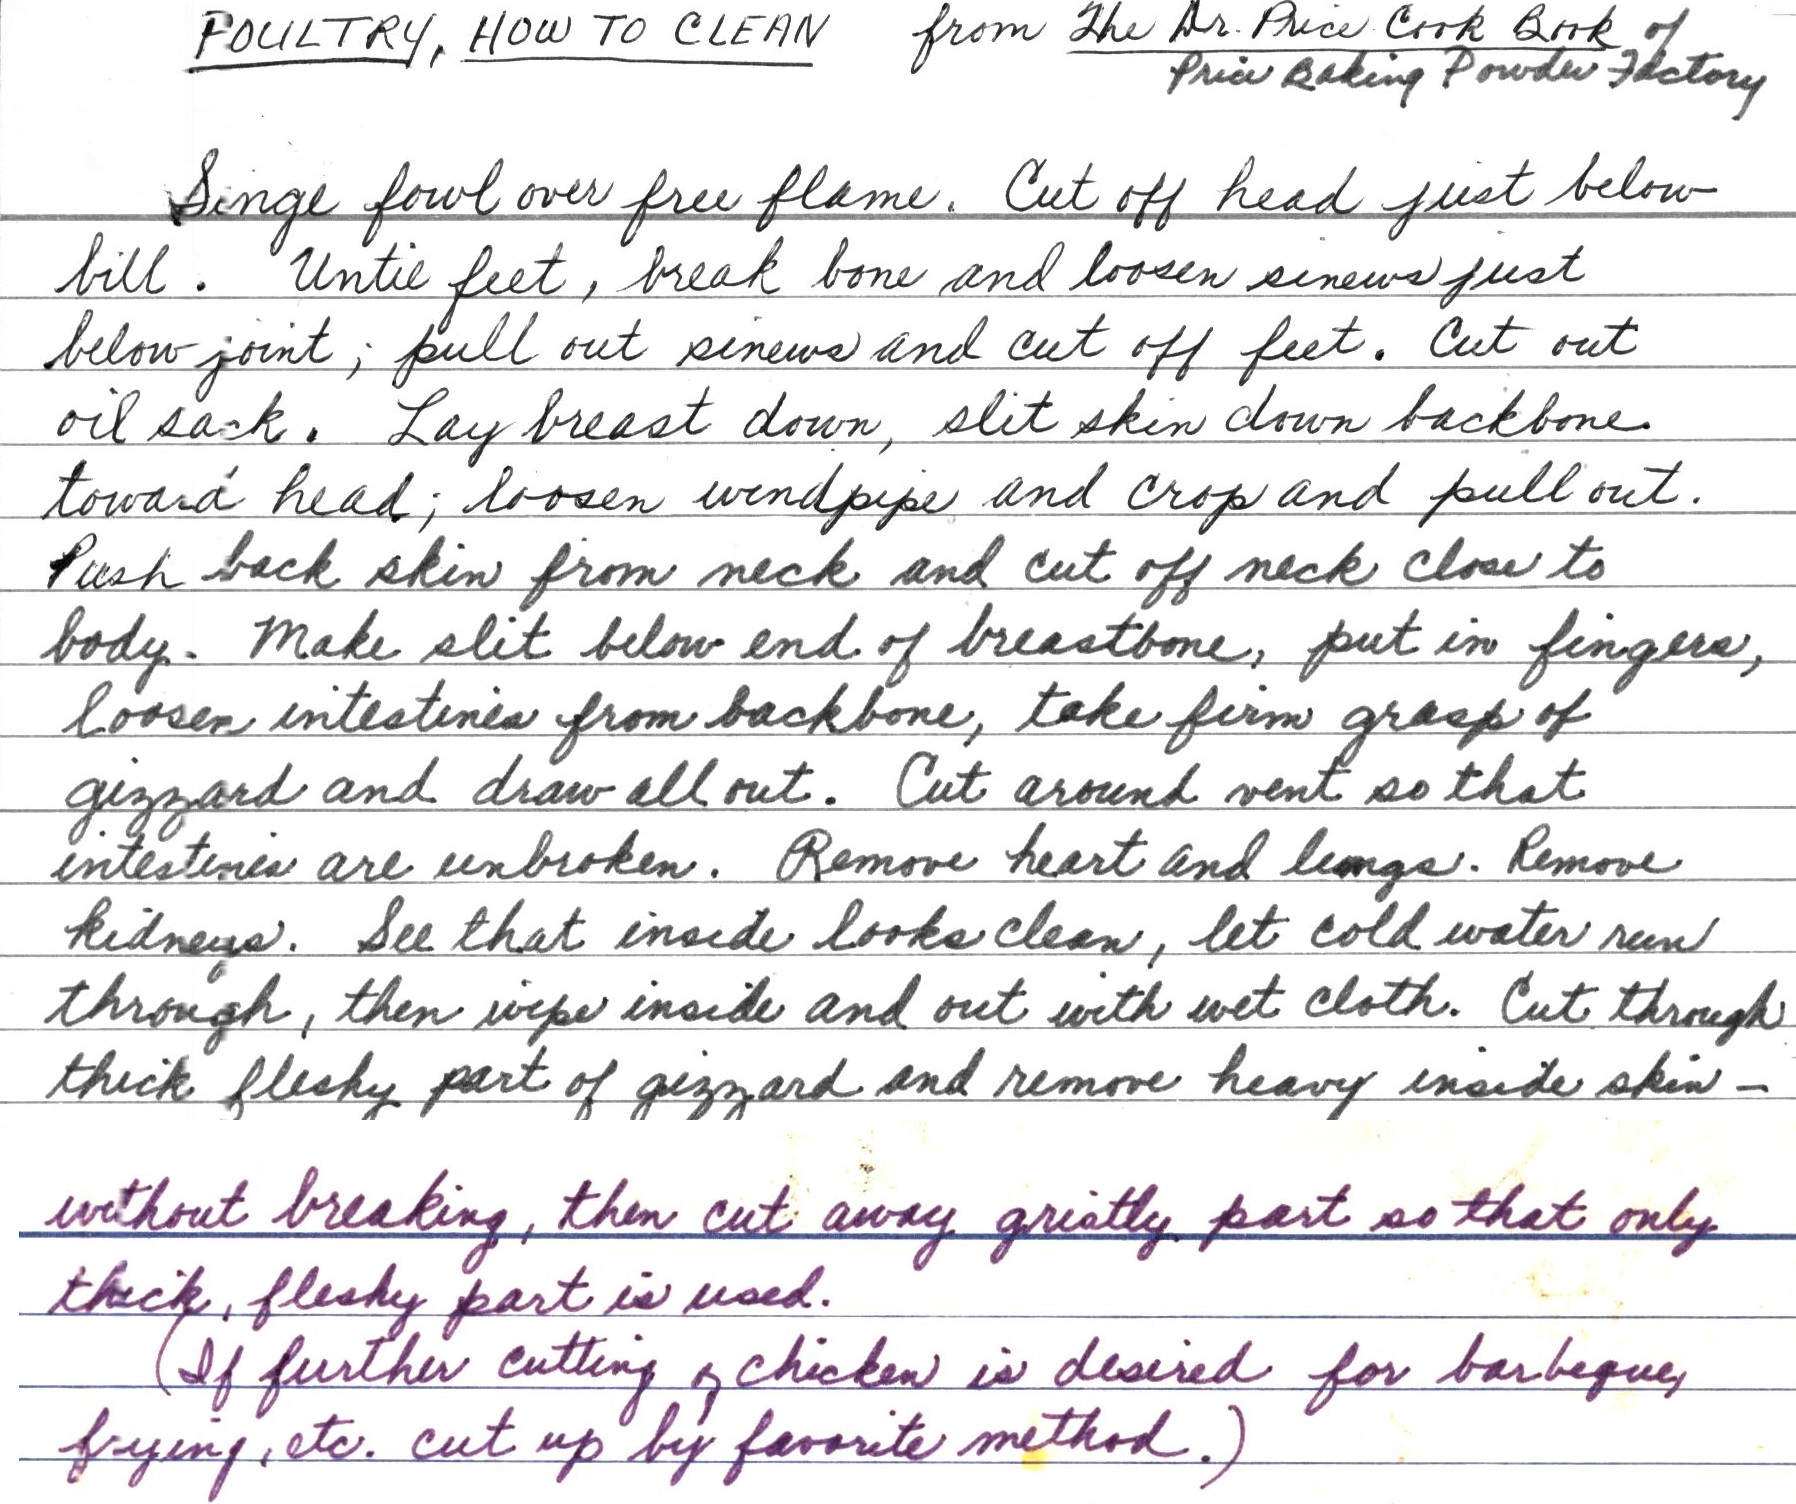 POULTRY, HOW TO CLEAN from The Dr. Price Cook Book of
Price Baking Powder Factory
Singe fowl over free flame. Cut off head just below
bill. Untie feet, break bone and loosen sinews just
below joint; pull out sinews and cut off feet. Cut out
oil sack. Lay breast down, slit skin down backbone
toward head; loosen windpipe and crop and pull out.
Push back skin from neck and cut off neck close to
body. Make slit below end of breastbone, put in fingers,
loosen intestines from backbone, take firm grasp of
gizzard and draw all out. Cut around vent so that
intestines are unbroken. Remove heart and lungs. Remove
kidneys. See that inside looks clean, let cold water run
through, then wipe inside and out with wet cloth. Cut through
thick fleshy part of gizzard and remove heavy inside skin -
without breaking, then cut away gristly part so that only
thick, fleshy part is used.
(If further cutting of chicken is desired for barbeque,
frying, etc. cut up by favorite method.)